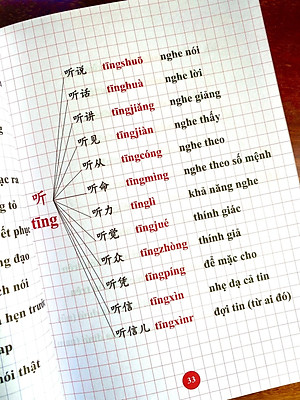 听说 tīngshuō nghe nói
听话 tīnghuà nghe lời
听讲 tīngjiǎng nghe giảng
听见 tīngjiàn nghe thấy
听从 tīngcóng nghe theo
听命 tīngmìng nghe theo số mệnh
听力 tīnglì khả năng nghe
听觉 tīngjué thính giác
听众 tīngzhòng thính giả
听凭 tīngpíng để mặc cho
听信 tīngxìn nhẹ dạ cả tin
听信儿 tīngxìnr đợi tin (từ ai đó)
听
tīng
ạc ra
g tỏ
ết phục
g đạo
ch nói
i hẹn trước
ap
nói thật
33